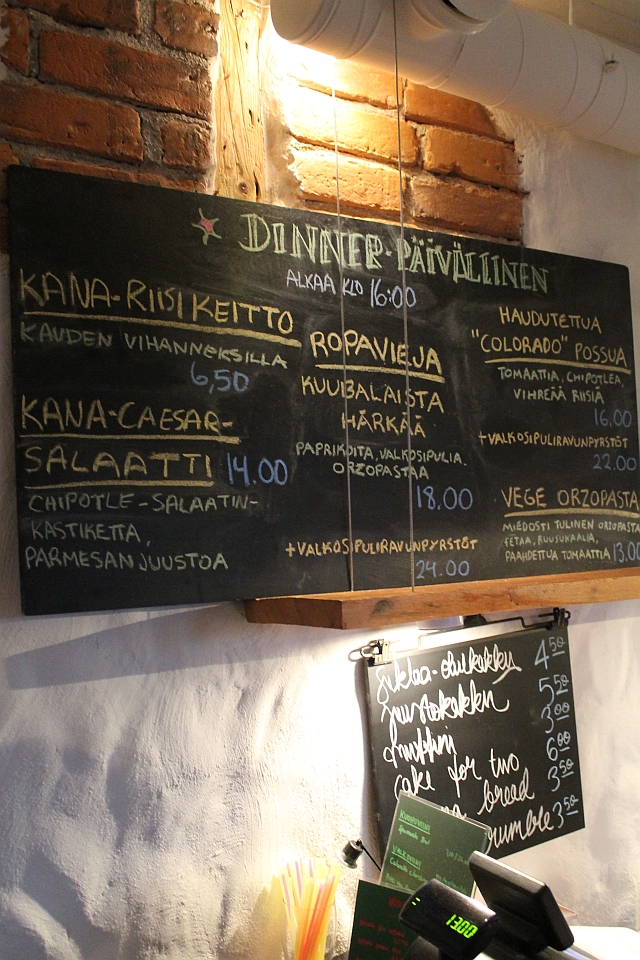 DINNER-PÄIVÄLLINEN
ALKAA KLO 16:00
KANA-RIISIKEITTO
KAUDEN VIHANNEKSILLA
6,50
KANA-CAESAR-
SALAATTI 14.00
CHIPOTLE-SALAATIN-
KASTIKETTA,
PARMESANJUUSTOA
ROPAVIEJA
KUUBALAISTA
HÄRKÄÄ
PAPRIKOITA, VALKOSIPULIA.
ORZOPASTAA
18.00
+VALKOSIPULIRAVUNPYRSTÖT
24.00
HAUDUTETTUA
"COLORADO" POSSUA
TOMAATTIA, CHIPOTLEA,
VIHREÄÄ RIISIÄ
16.00
+VALKOSIPULIRAVUNPYRSTÖT
22.00
VEGE ORZOPASTA
MIEDOSTI TULINEN ORZOPASTA
FETAA, RUUSUKAALIA,
PAAHDETTUA TOMAATTIA 13.00
Suklaa-olutkakku 4 50
juustokakku 5 50
muffini 3 00
cake for two 6 00
bread 3 50
crumble 3 50
13.00